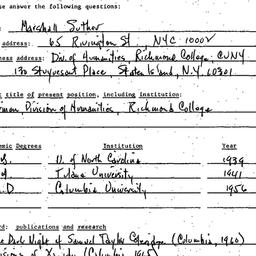 se answer the following questions:
: Marshall Suther
address: 65 Rivington St. NYC 10002
ness address: Div. of Humanities, Richmond College, CUNY
130 Stuyvesant Place, Staten Island, N.Y. 10301
t title of present position, including institution:
rman, Division of Humanities, Richmond College
emic Degrees Institution Year
U. of North Carolina 1939
Tulane University 1941
.D Columbia University 1956
rd: publications and research
e Dark Night of Samuel Taylor Coleridge (Columbia, 1960)
sions of Xanadu (Columbia 1965)